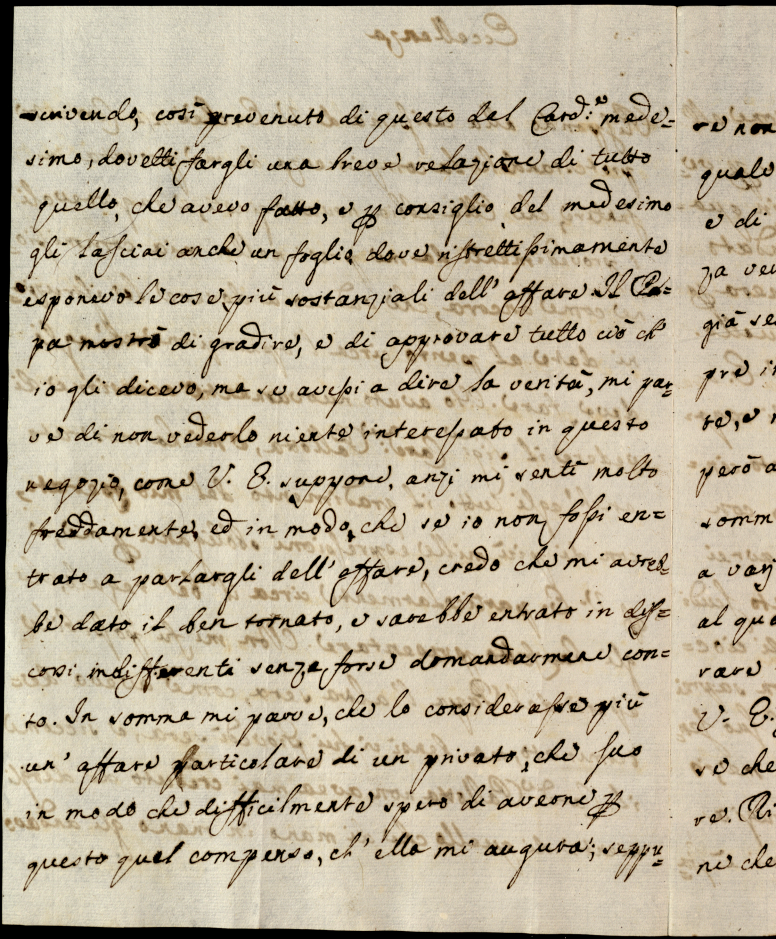 scrivendo, così prevenuto di questo dal Card:e mede=
simo, dovetti fargli una breve relazione di tutto
quello, che avevo fatto, e ꝑ consiglio del medesimo
gli lasciai anche un foglio dove ristrettissimamente
esponevo le cose più sostanziali dell' affare. Il Pa=
pa mostrò di gradire, e di approvare tutto ciò ch'
io gli dicevo, ma se avessi a dire la verità, mi par=
ve di non vederlo niente interessato in questo
negozio, come V. E. suppone, anzi mi sentì molto
freddamente, ed in modo, che se io non fossi en=
trato a parlargli dell' affare, credo che mi avreb=
be dato il ben tornato, e sarebbe entrato in dis=
corsi indifferenti senza forse domandarmene con=
to. In somma mi parve, che lo considerasse più
un' affare particolare di un privato, che suo
in modo che difficilmente spero di averne ꝑ
questo quel compenso, ch' ella mi augura; seppu=
re non
qualc
e di
za ve
già se
pre in
te, e
però a
somm
a varj
al qua
rare
V. E.
se che
re. Ri
ne che